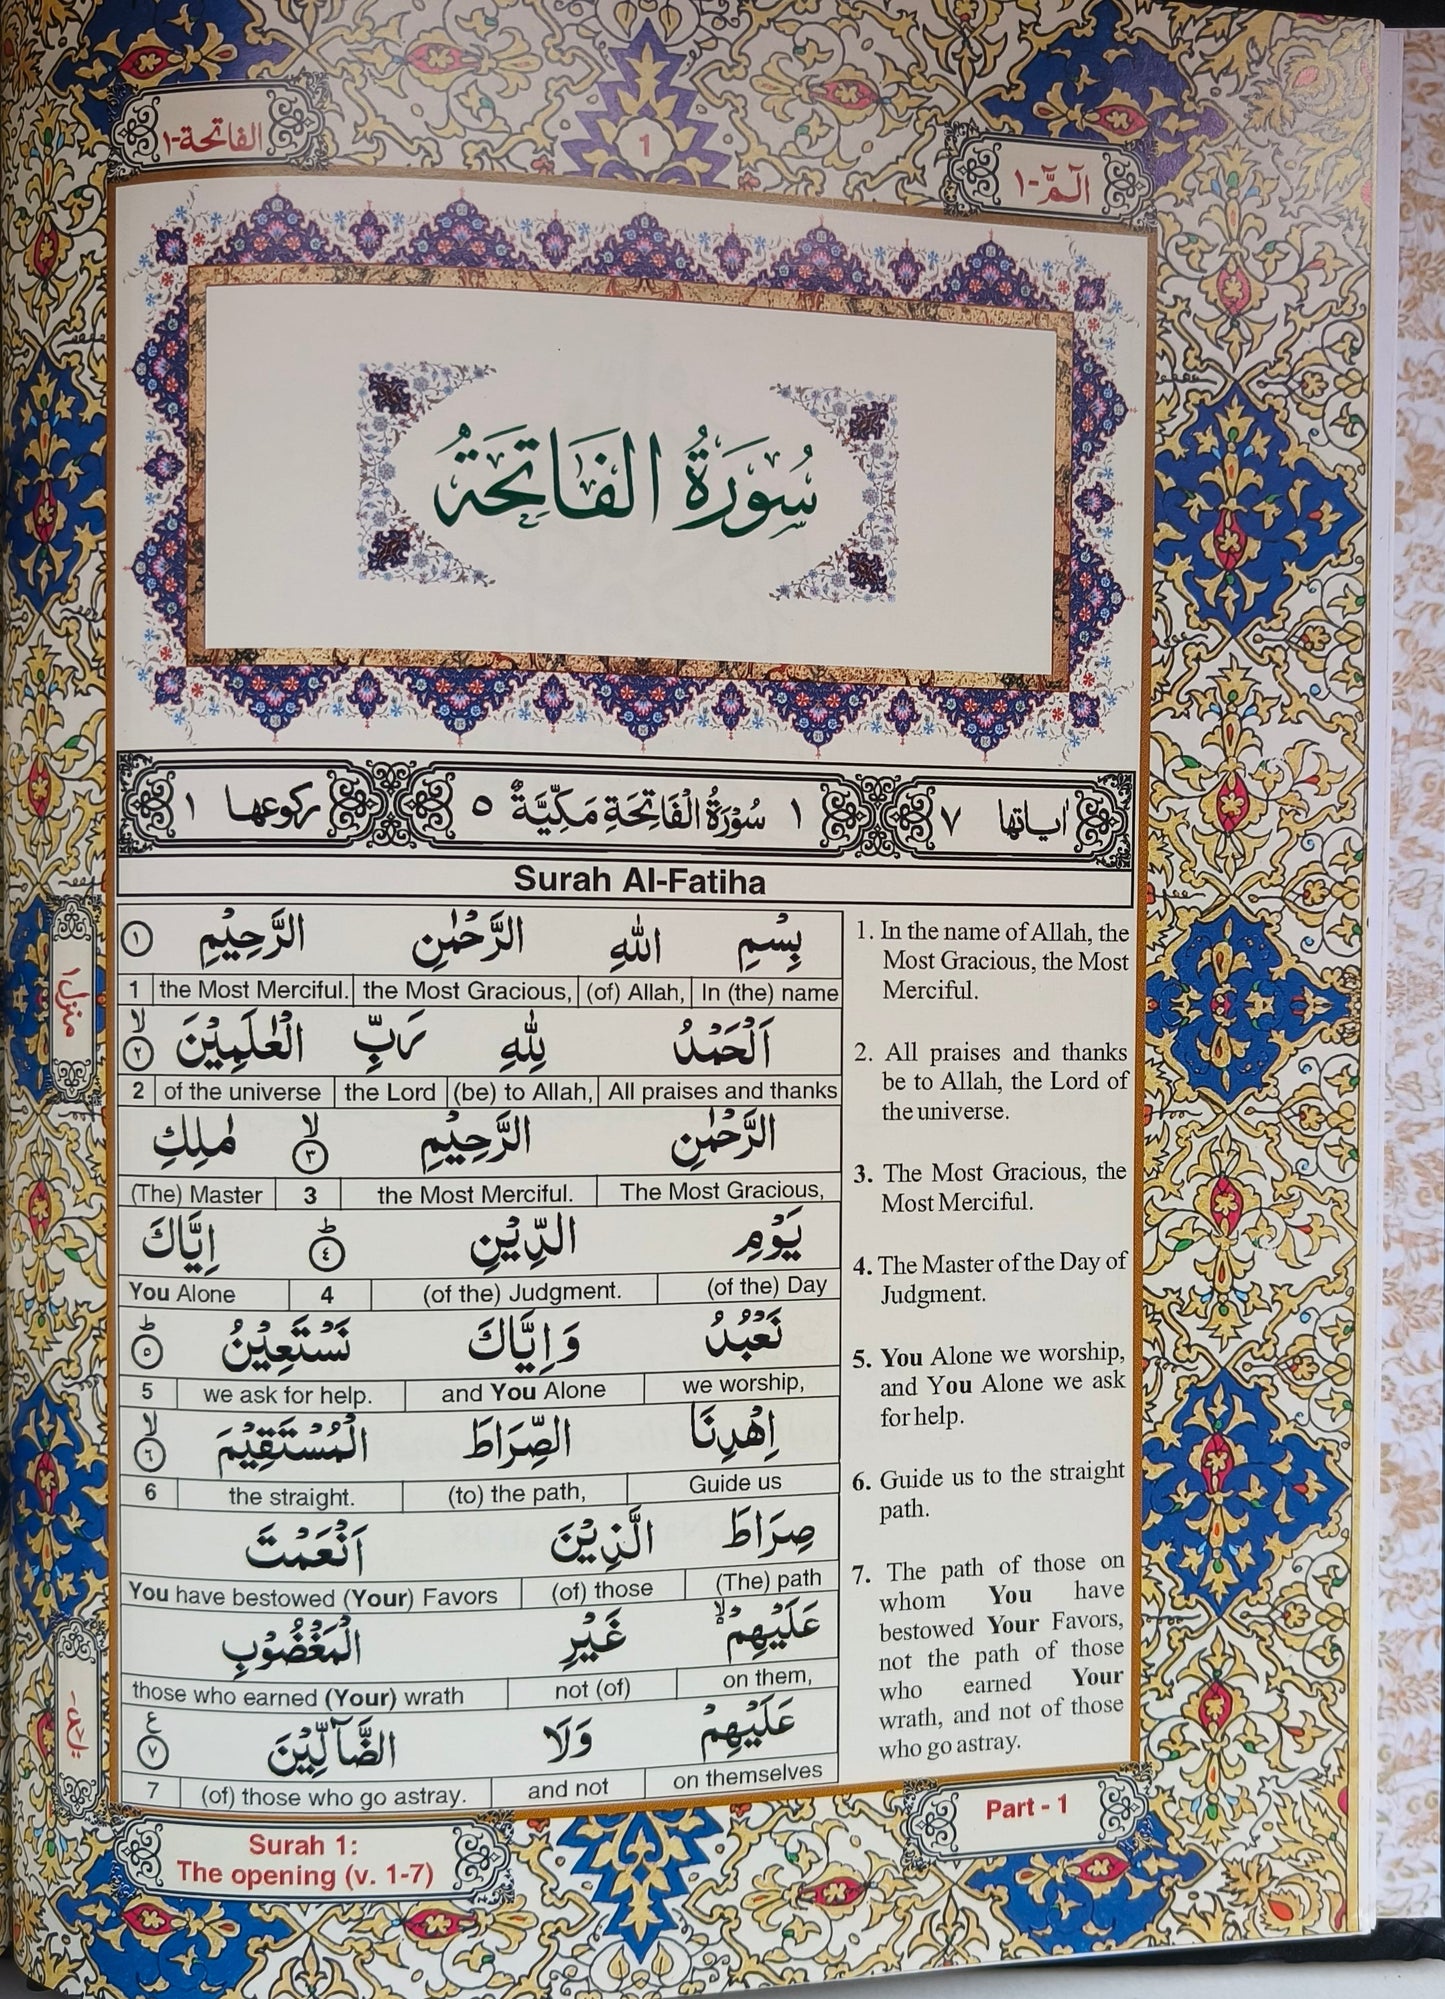 الفاتحة-١
1
الٓمّٓ-١
سُورَةُ الفَاتِحَةُ
اٰیاتها ٧
١ سُوْرَةُ الْفَاتِحَةِ مَكِّيَّةٌ ٥
ركوعها ١
Surah Al-Fatiha
بِسْمِ اللّٰهِ الرَّحْمٰنِ الرَّحِيْمِ ١
1 the Most Merciful. the Most Gracious, (of) Allah, In (the) name
اَلْحَمْدُ لِلّٰهِ رَبِّ الْعٰلَمِيْنَ ۙ ٢
2 of the universe the Lord (be) to Allah, All praises and thanks
الرَّحْمٰنِ الرَّحِيْمِ ۙ ٣ مٰلِكِ
(The) Master 3 the Most Merciful. The Most Gracious,
يَوْمِ الدِّيْنِ ؕ ٤ اِيَّاكَ
You Alone 4 (of the) Judgment. (of the) Day
نَعْبُدُ وَاِيَّاكَ نَسْتَعِيْنُ ؕ ٥
5 we ask for help. and You Alone we worship,
اِهْدِنَا الصِّرَاطَ الْمُسْتَقِيْمَ ۙ ٦
6 the straight. (to) the path, Guide us
صِرَاطَ الَّذِيْنَ اَنْعَمْتَ
You have bestowed (Your) Favors (of) those (The) path
عَلَيْهِمْ ۙ۬ غَيْرِ الْمَغْضُوْبِ
those who earned (Your) wrath not (of) on them,
عَلَيْهِمْ وَلَا الضَّآلِّيْنَ ع ٧
7 (of) those who go astray. and not on themselves
1. In the name of Allah, the
Most Gracious, the Most
Merciful.
2. All praises and thanks
be to Allah, the Lord of
the universe.
3. The Most Gracious, the
Most Merciful.
4. The Master of the Day of
Judgment.
5. You Alone we worship,
and You Alone we ask
for help.
6. Guide us to the straight
path.
7. The path of those on
whom You have
bestowed Your Favors,
not the path of those
who earned Your
wrath, and not of those
who go astray.
منزل ١
Surah 1:
The opening (v. 1-7)
Part - 1